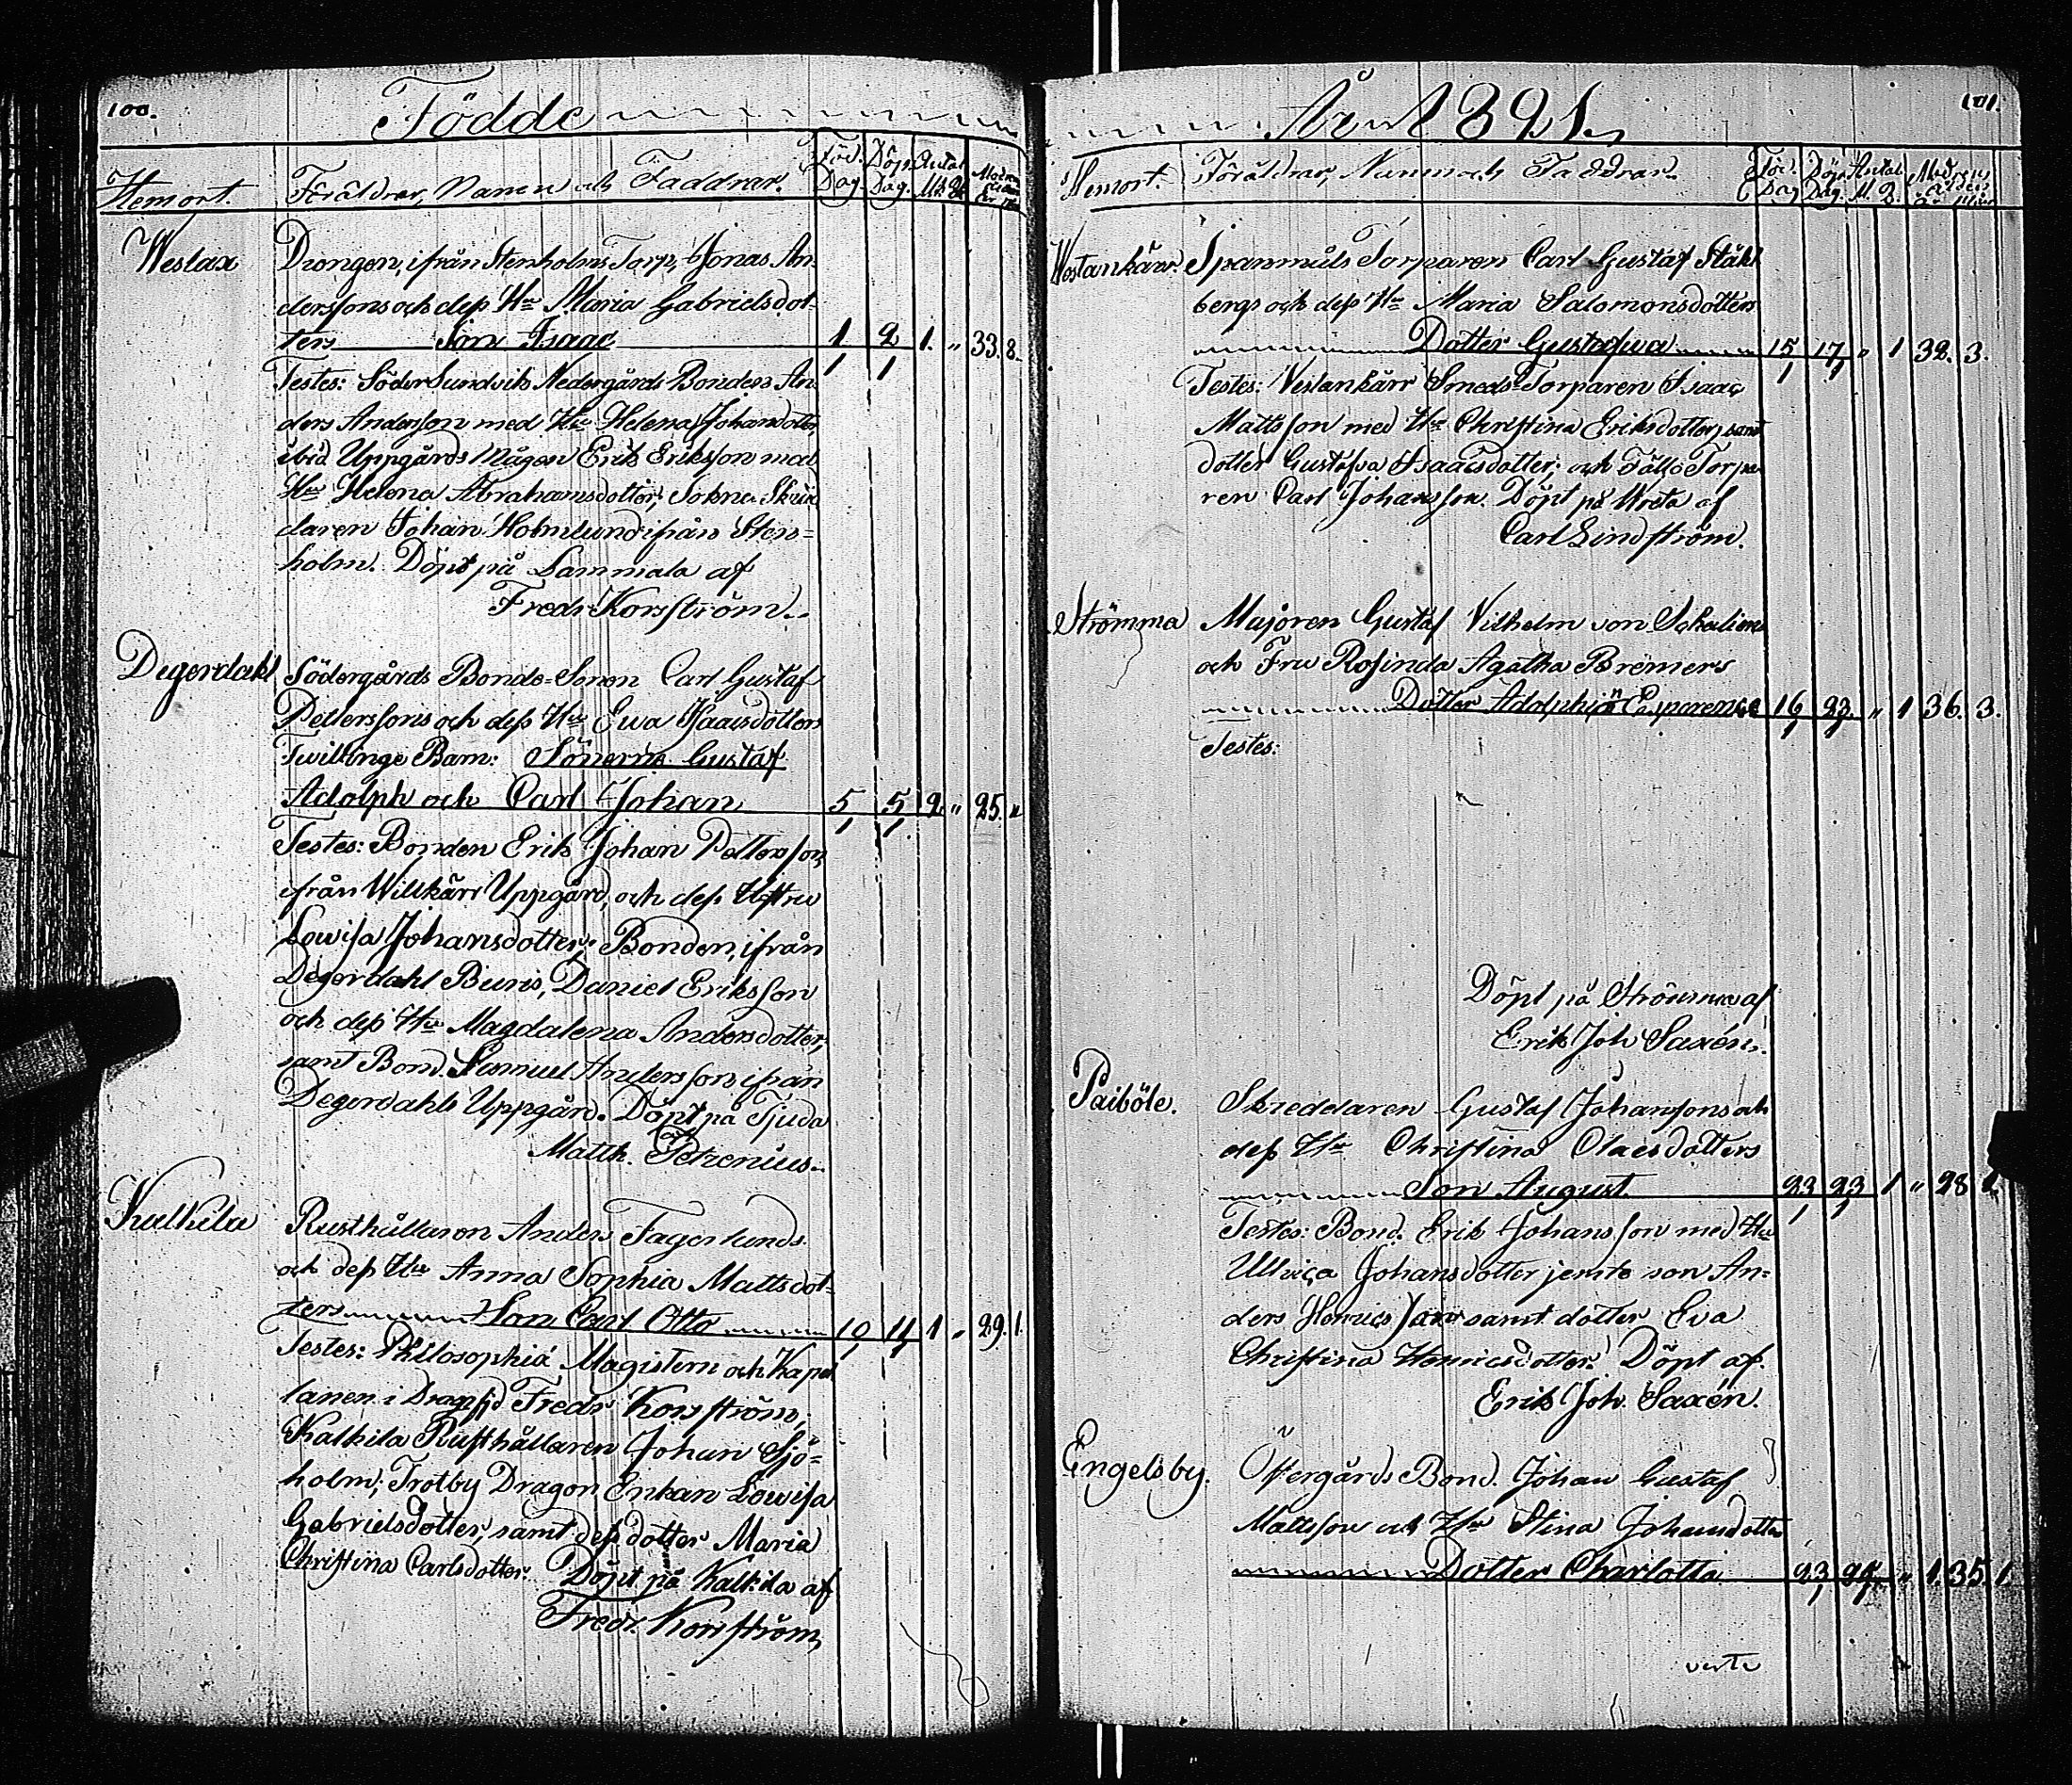 100.
Födde
Hemort. Föräldrar, Namn och Faddrar. Föd. Dag. Döp. Dag. Antal M. Q.
Westlax Drongen, ifrån Stenholms Torp, Jonas An-
derssons och dess Hu Maria Gabrielsdot-
ters Son Isaac 1/1 2/1 1. " 33. 8.
Testes: Söder Sundvik Nedergårds Bonden An-
ders Andersson med Hu Helena Johansdotter,
ibid Uppgårds Mågen Erik Eriksson med
Hu Helena Abrahamsdotter, Sokne Skräd-
daren Johan Holmlund ifrån Sten-
holm. Döpt på Lammala af
Fredr Korsström.
Degerdahl Södergårds Bonde-Sonen Carl Gustaf
Petterssons och dess Hu Ewa Isaacsdotters
Twillinge Barn: Sönerne Gustaf
Adolph och Carl Johan 5/1 5/1 2. " 25. "
Testes: Bonden Erik Johan Pettersson,
ifrån Willkärr Uppgård, och dess Hustru
Lowisa Johansdotter; Bonden, ifrån
Degerdahl Buris, Daniel Eriksson
och dess Hu Magdalena Andersdotter,
samt Bond. Samuel Andersson ifrån
Degerdahls Uppgård. Döpt på Tjuda
af
Matth. Petrenius.
Kalkila Rusthållaren Anders Fagerlunds
och dess Hu Anna Sophia Mattsdot-
ters Son Carl Otto 10/1 14/1 1 " 29. 1.
Testes: Philosophiæ Magistern och Kapel
lanen i Dragsfjd Fredr Korsström;
Kalkila Rusthållaren Johan Sjö-
holm; Trotby Dragon Enkan Lowisa
Gabrielsdotter, samt dess dotter Maria
Christina Carlsdotter. Döpt på Kalkila af
Fredr. Korsström,
101.
År 1821.
Hemort. Föräldrar, Namn och Faddrar. Föd. Dag Döp. Dag. Antal M. Q.
Westankärr. Spanmåls Torparen Carl Gustaf Ståhl
bergs och dess Hu Maria Salomonsdotters
Dotter Gustafwa 15/1 17/1 " 1 32. 3.
Testes: Vestankärr Smeds-Torparen Isaac
Mattsson med Hu Christina Eriksdotter, samt
dotter Gustafva Isaacsdotter; och Torpa
ren Carl Johansson. Döpt på af
Carl Lindström.
Strömma Majoren Gustaf Vilhelm von
och Fru Rosinda Agatha Bremers
Dotter Adolphina Esperence 16/1 23/1 " 1 36. 3.
Testes:
Döpt på Strömma af
Erik Joh Saxén.
Paiböle. Skreddaren Gustaf Johanssons och
dess Hu Christina Claesdotters
Son August 23/1 23/1 1 " 28
Testes: Bond. Erik Johansson med Hu
Ullrica Johansdotter jemte son An-
ders Henricsson samt dotter Eva
Christina Henricsdotter. Döpt af.
Erik Joh. Saxén.
Engelsby. Öfvergårds Bond. Johan Gustaf
Mattsson och Hu Stina Johansdotter
Dotter Charlotta 23/1 " 1 35. 1
verte